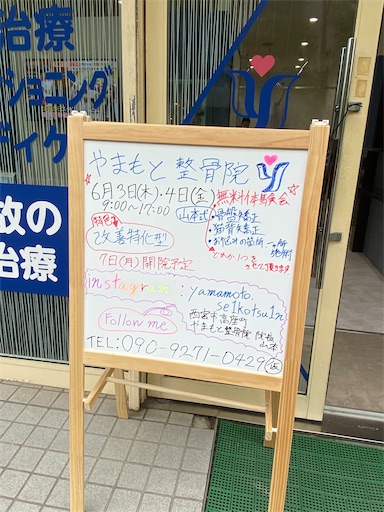 治療
ショニング
ディケ
故の
治療
やまもと 整骨院
6月3日(木).4日(金)
9:00～17:00
山本式
無料体験会
・骨盤矯正
・猫背矯正
・お悩みの箇所一ヶ所施術
どれか1つを
させて頂きます
特色
改善特化型
7日(月)開院予定
instagram : yamamoto.
se1kotsu1n
Follow me
西宮市高座町
やまもと整骨院 院長
山本
TEL:090-9271-0429(仮)